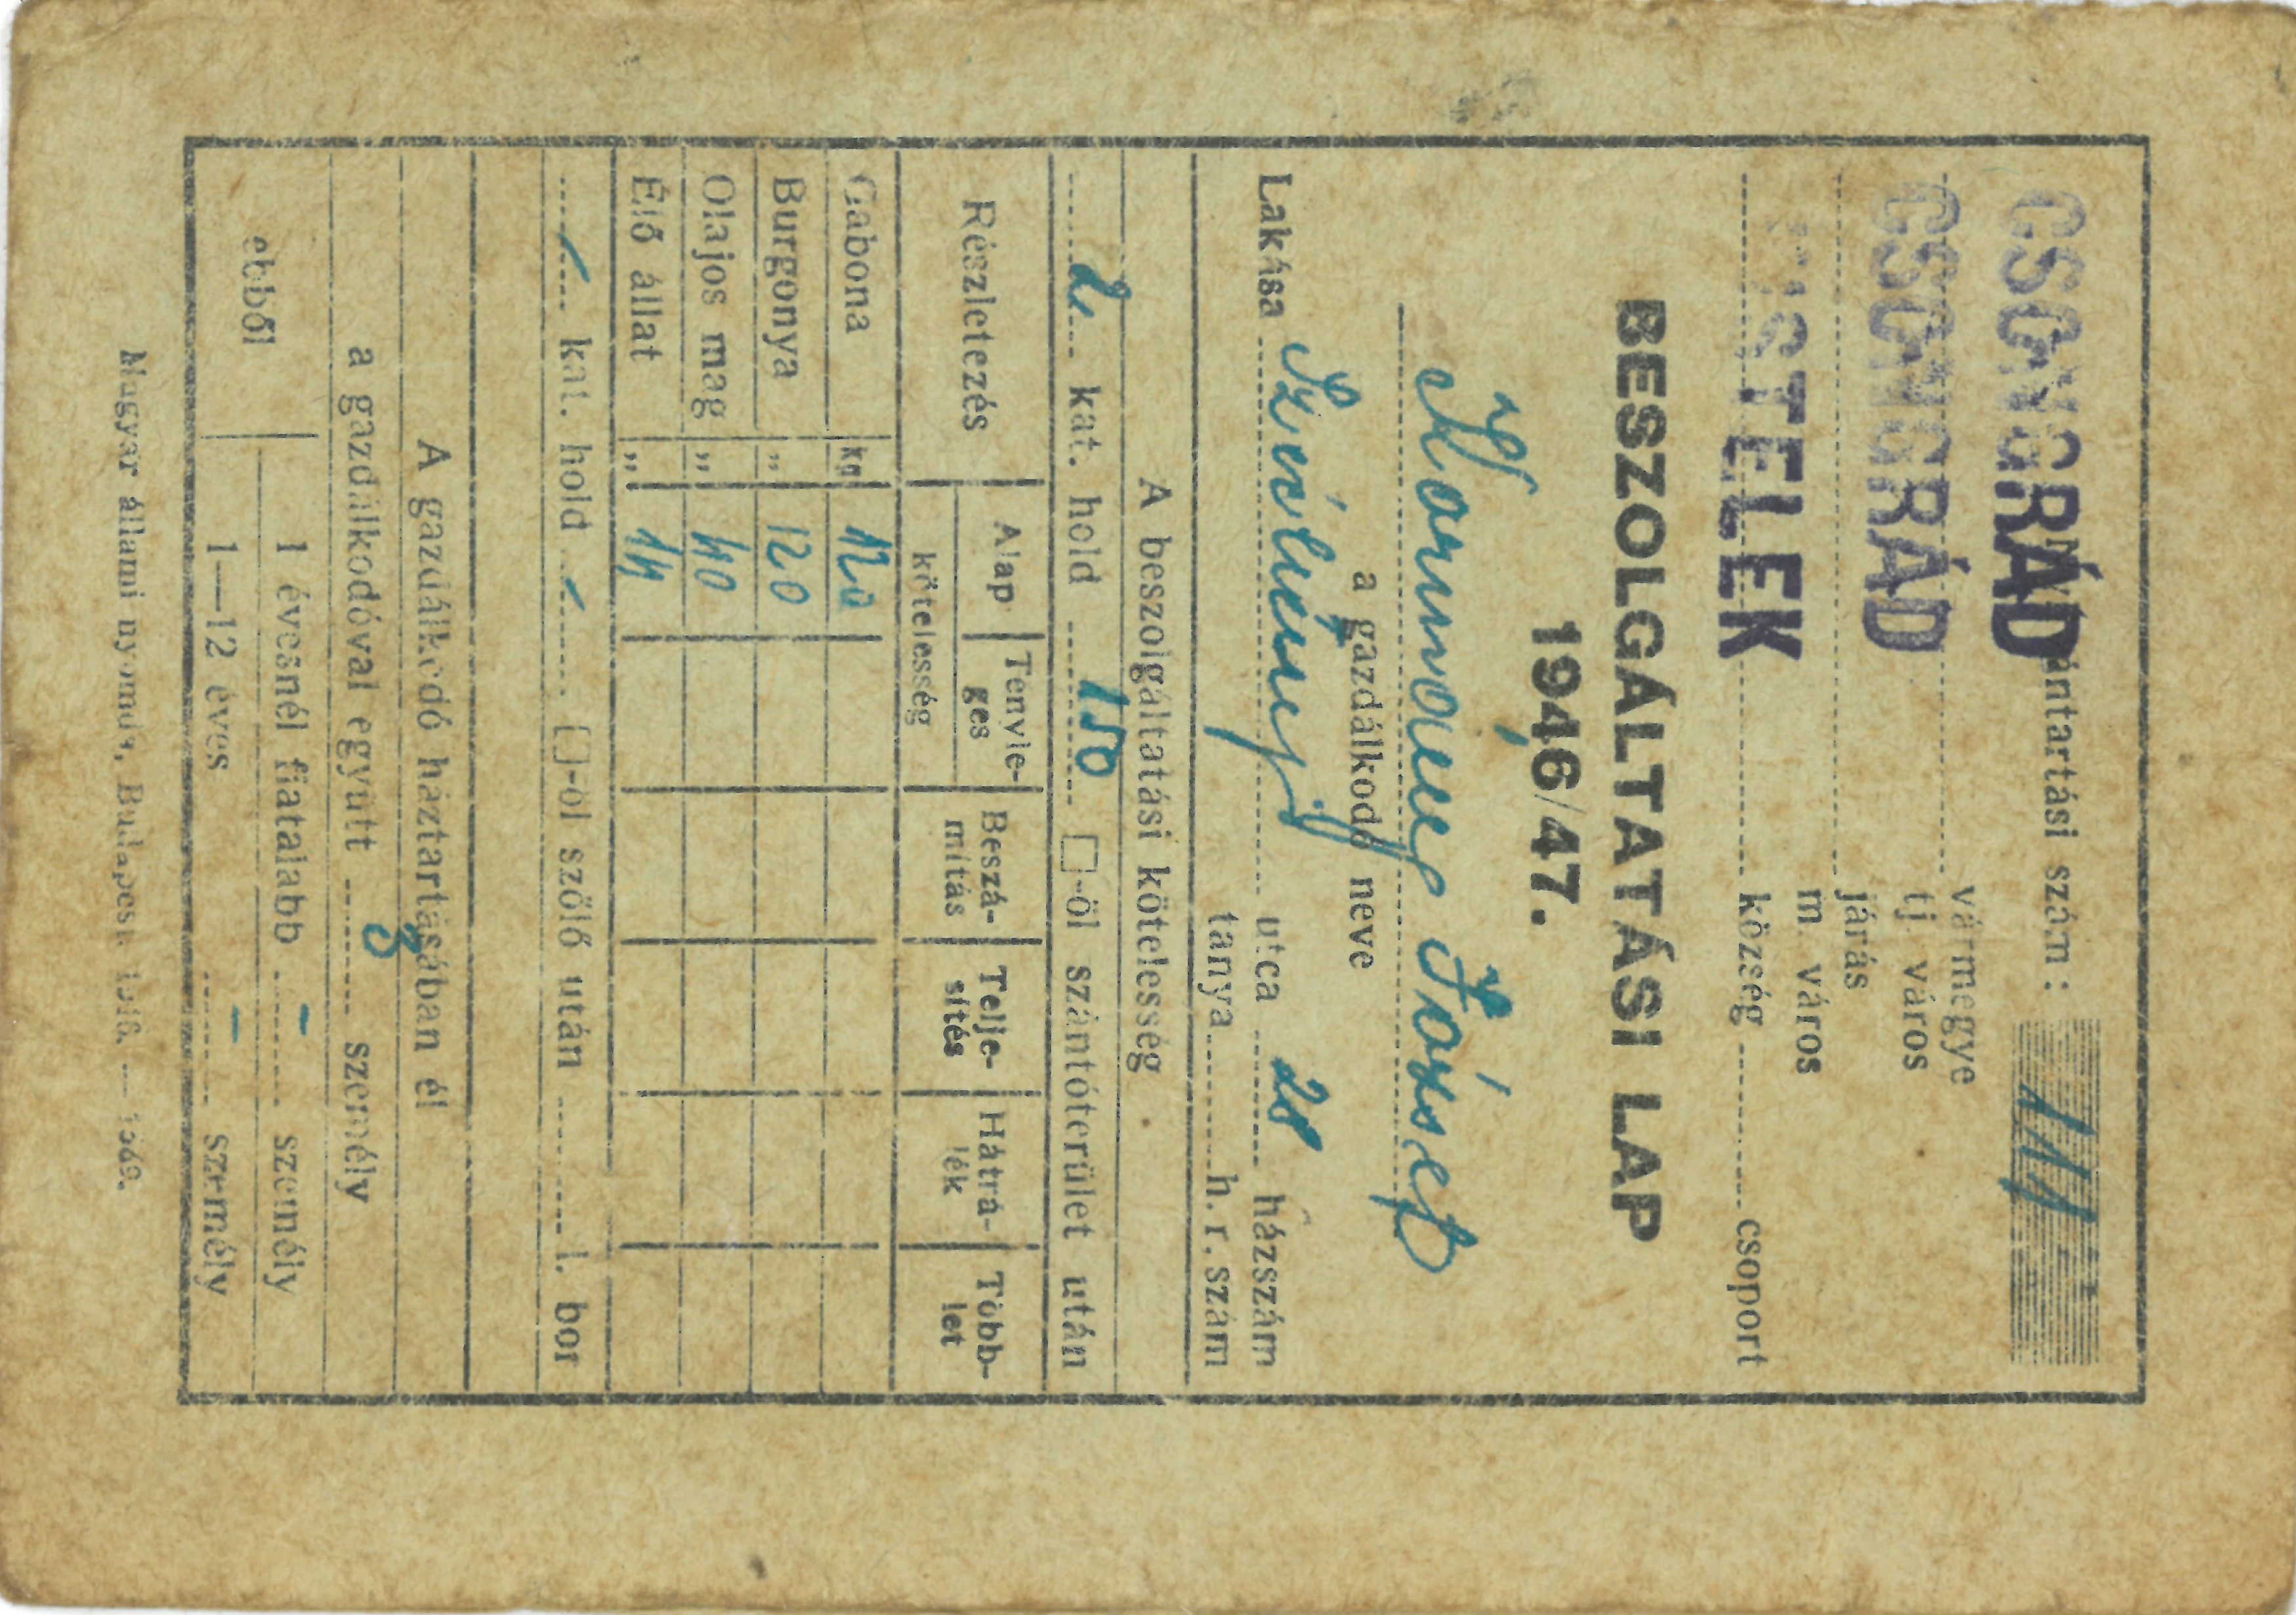 Nyilvántartási szám: 111
CSONGRÁD vármegye
tj város
CSONGRÁD járás
m város
KISTELEK község csoport
BESZOLGÁLTATÁSI LAP
1946/47.
József
a gazdálkodó neve
Lakása Széchenyi utca 28 házszám
tanya h. r. szám
A beszolgáltatási kötelesség
2 kat. hold 150 □-öl szántóterület után
Részletezés Alap Tényleges kötelesség Beszámítás Teljesítés Hátrálék Többlet
Gabona kg 120
Burgonya „ 120
Olajos mag „ 40
Élő állat „ 14
kat. hold □-öl szőlő után l. bor
A gazdálkodó háztartásában él
a gazdálkodóval együtt 3 személy
ebből 1 évesnél fiatalabb – személy
1—12 éves – személy
Magyar állami nyomda, Budapest.